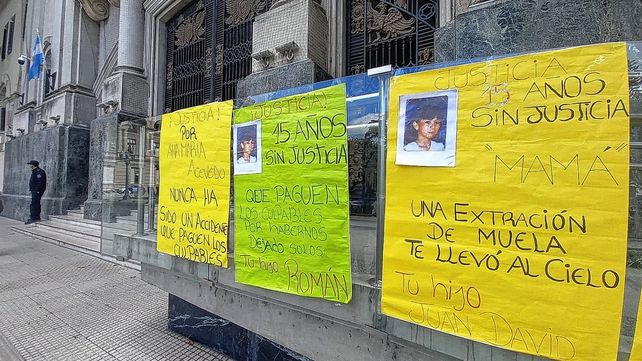 ¡JUSTICIA!
POR
ANA MARIA
ACEVEDO
NUNCA HA
SIDO UN ACCIDENTE
QUE PAGUEN LOS
CULPABLES
¡JUSTICIA!
15 AÑOS
SIN JUSTICIA
QUE PAGUEN
LOS CULPABLES
POR HABERNOS
DEJADO SOLOS
Tu hijo ROMÁN
JUSTICIA
15 AÑOS
SIN JUSTICIA
"MAMÁ"
UNA EXTRACIÓN
DE MUELA
TE LLEVÓ AL CIELO
Tu hijo
JUAN DAVID